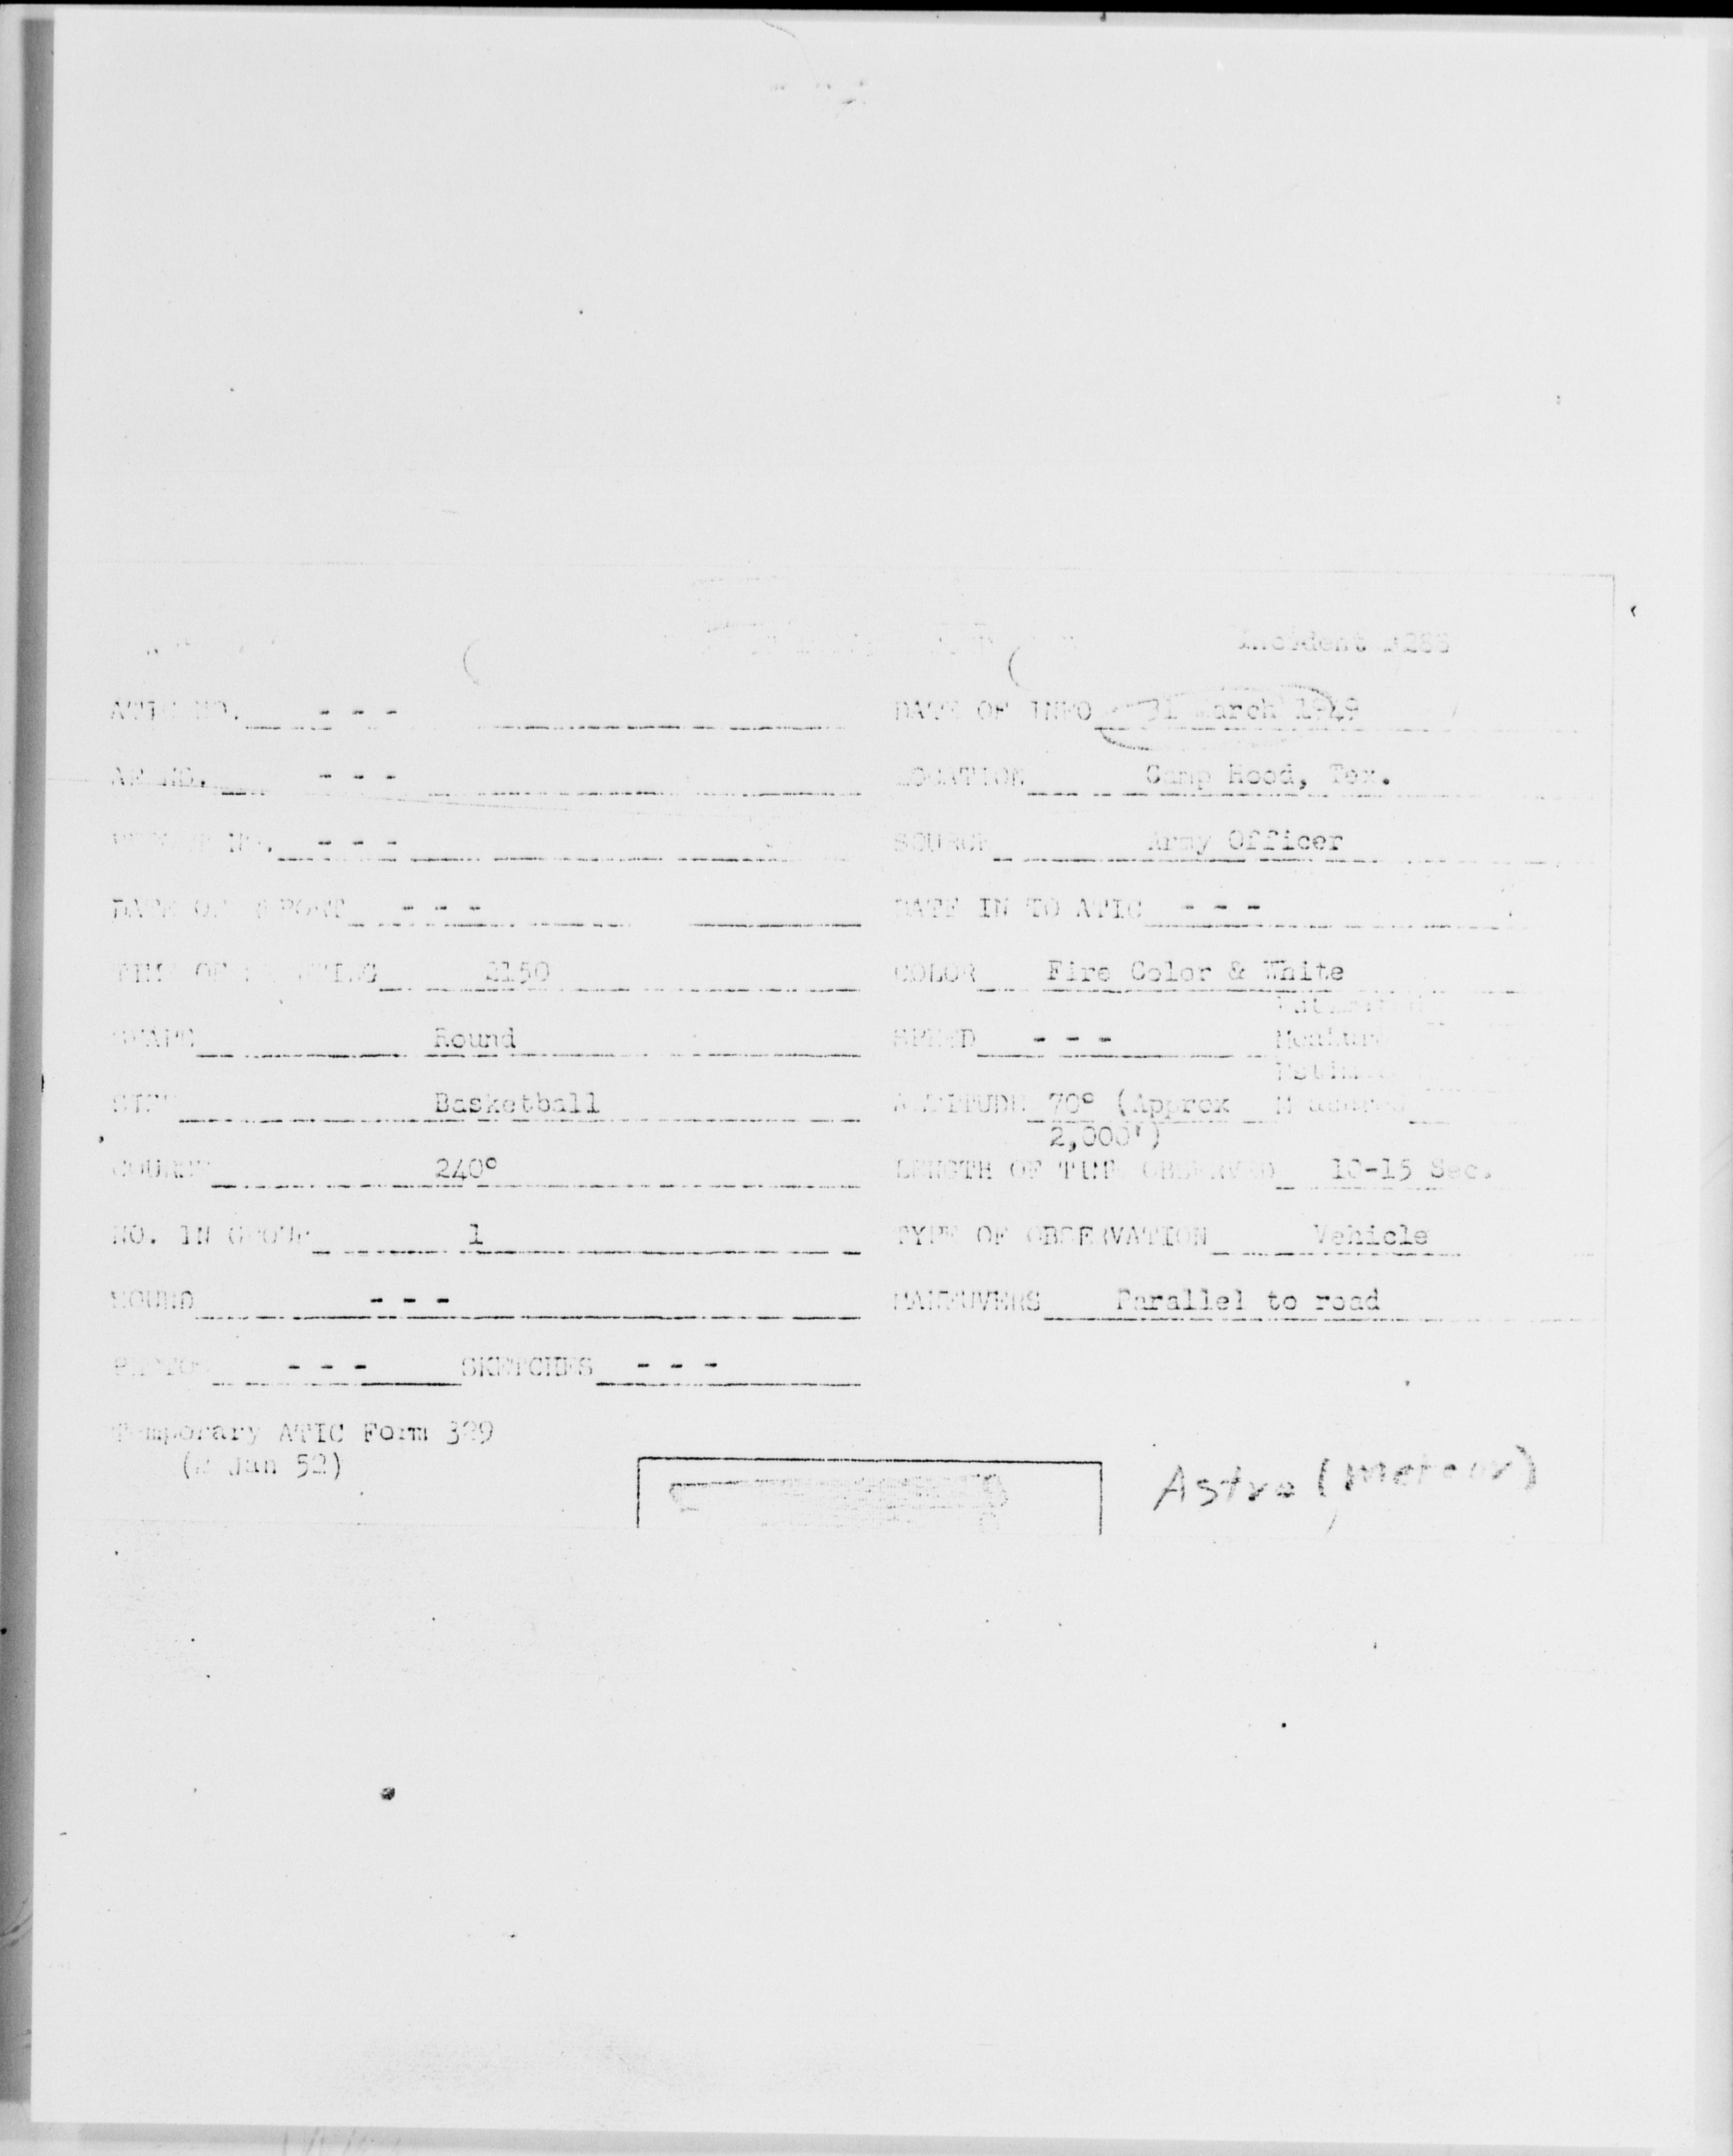 Incident
ATIC NO. - - - DATE OF INFO 31 March 1949
AF NO. - - - LOCATION Camp Hood, Tex.
NO. - - - SOURCE Army Officer
DATE OF REPORT - - - DATE IN TO ATIC - - -
TIME OF SIGHTING 2150 COLOR Fire Color & White
SHAPE Round SPEED - - -
SIZE Basketball ALTITUDE 70° (Approx
2,000')
COURSE 240° LENGTH OF TIME OBSERVED 10-15 Sec.
NO. IN GROUP 1 TYPE OF OBSERVATION Vehicle
SOUND - - - MANEUVERS Parallel to road
PHOTOS - - - SKETCHES - - -
Temporary ATIC Form 329
(2 Jan 52)
Astro (meteor)